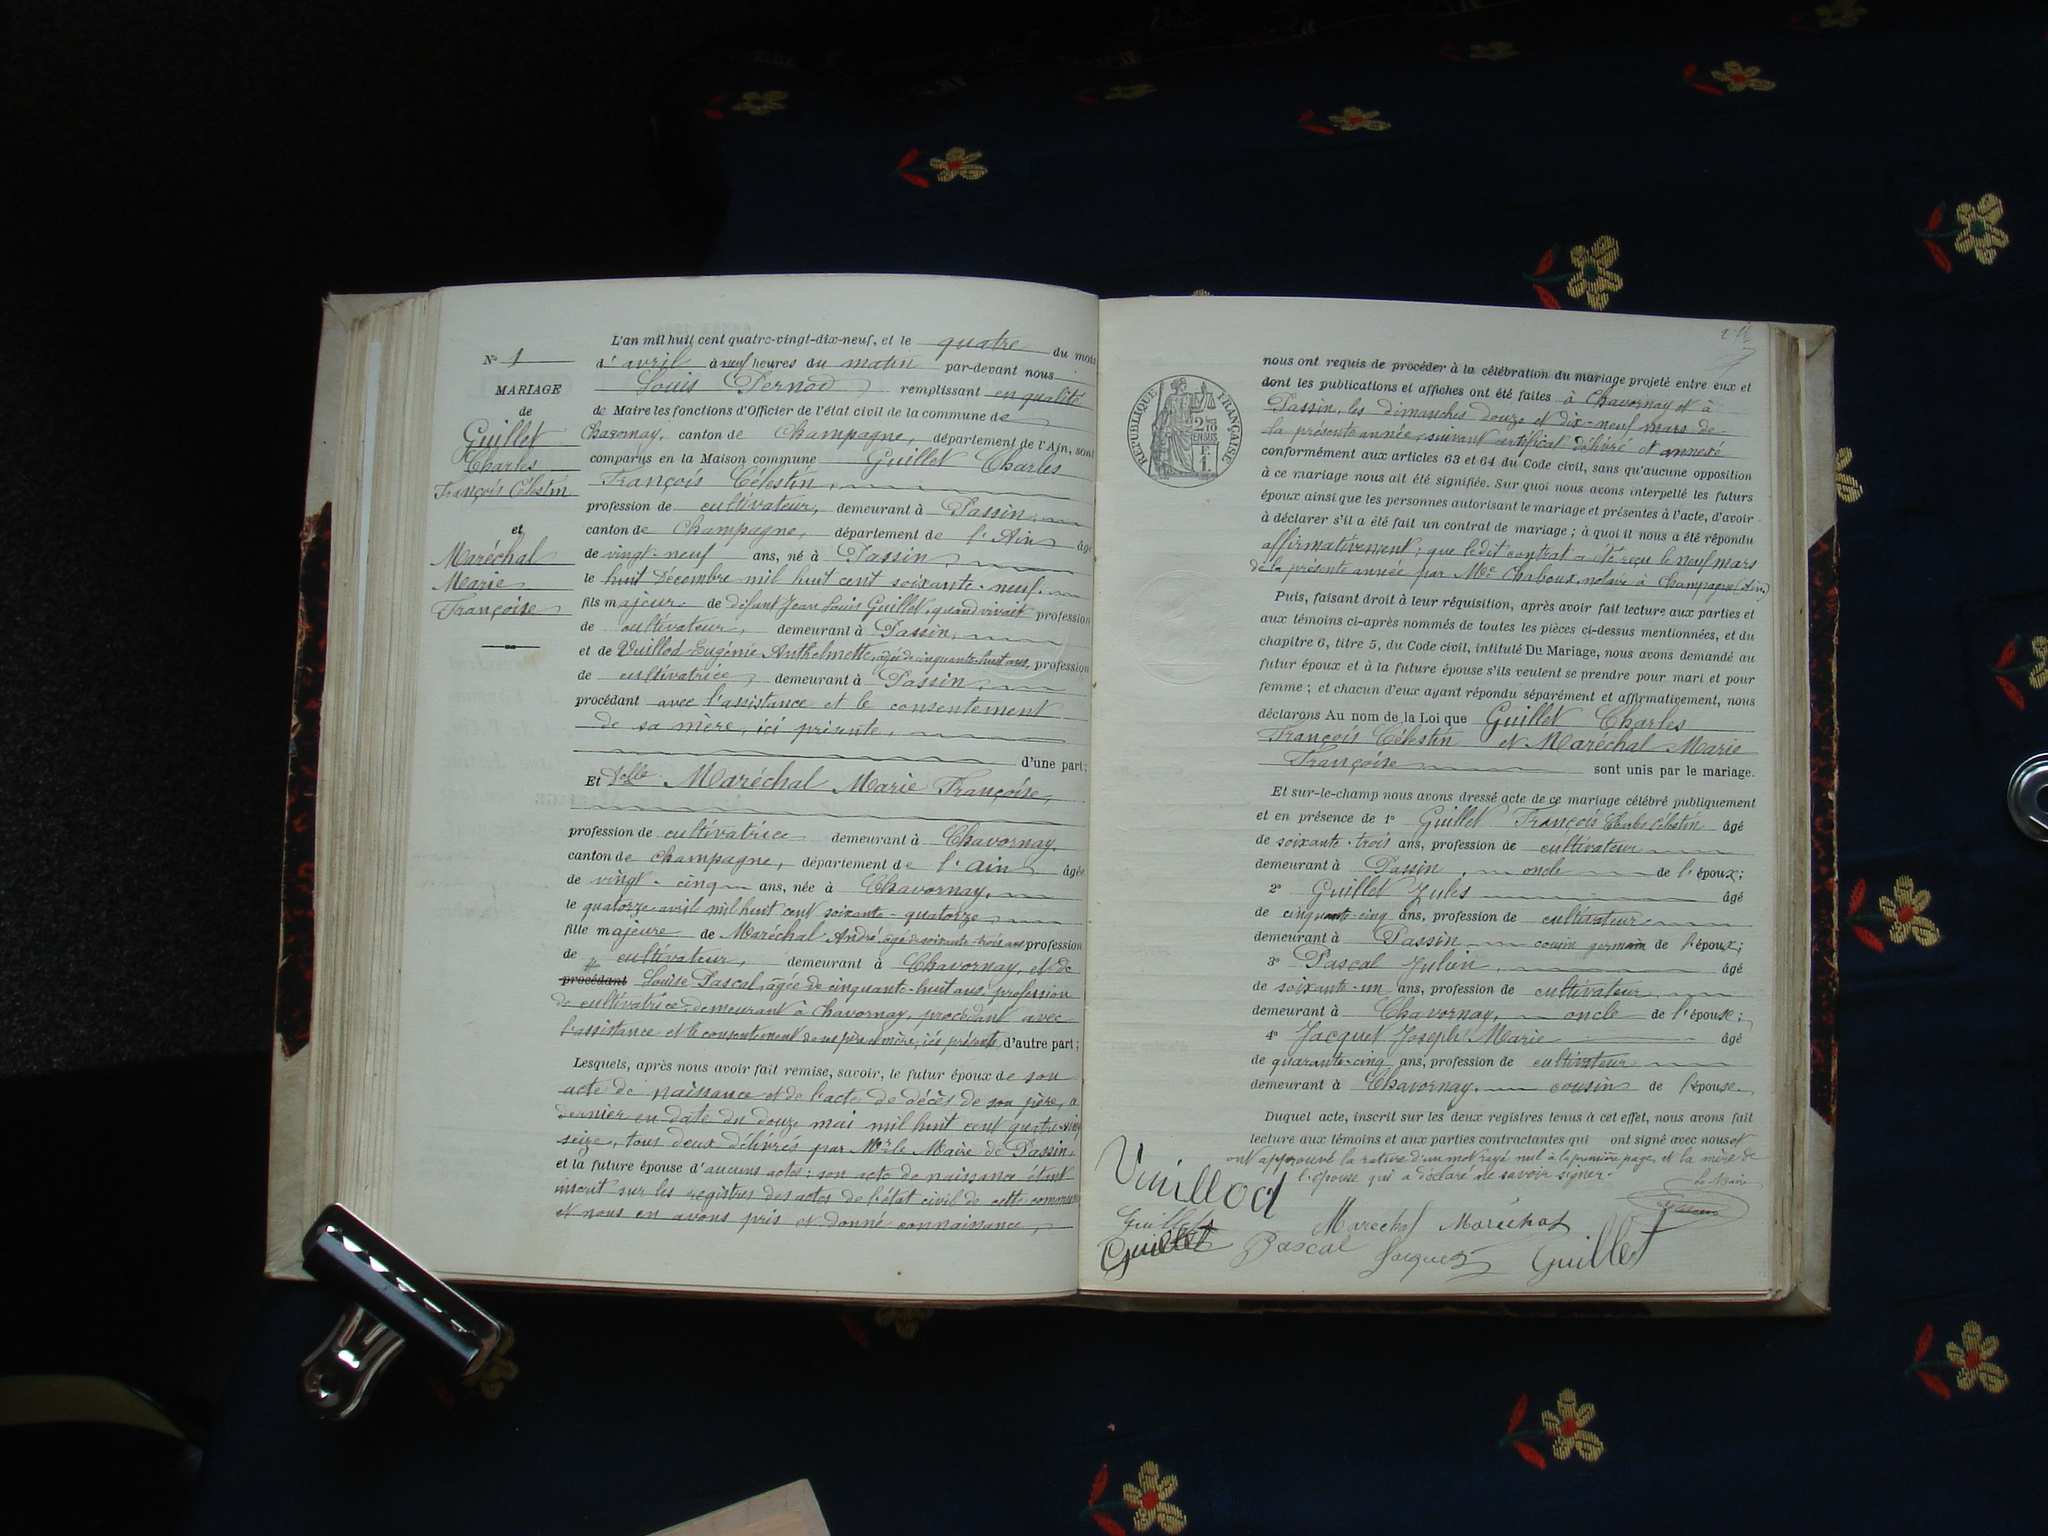 N° 1
MARIAGE
de
Guillet
Charles
François Célestin
et
Maréchal
Marie
Françoise
L'an mil huit cent quatre-vingt-dix-neuf, et le quatre du mois
d'avril à neuf heures du matin par-devant nous
Louis Pernod remplissant en qualité
de Maire les fonctions d'Officier de l'état civil de la commune de
Chavornay, canton de Champagne, département de l'Ain, sont
comparus en la Maison commune Guillet Charles
François Célestin,
profession de cultivateur, demeurant à Passin,
canton de Champagne, département de l'Ain âgé
de vingt-neuf ans, né à Passin,
le huit Décembre mil huit cent soixante-neuf,
fils majeur de défunt Jean Louis Guillet, quand vivait profession
de cultivateur, demeurant à Passin,
et de Vuillod Eugénie Anthelmette, âgée de cinquante-huit ans, profession
de cultivatrice, demeurant à Passin,
procédant avec l'assistance et le consentement
de sa mère, ici présente,
d'une part;
Et Delle Maréchal Marie Françoise,
profession de cultivatrice demeurant à Chavornay,
canton de Champagne, département de l'Ain âgée
de vingt-cinq ans, née à Chavornay,
le quatorze avril mil huit cent soixante-quatorze
fille majeure de Maréchal André, âgé de soixante-trois ans profession
de cultivateur, demeurant à Chavornay, et de
procédant Louise Pascal, âgée de cinquante-huit ans, profession
de cultivatrice demeurant à Chavornay, procédant avec
l'assistance et le consentement de ses père et mère, ici présents, d'autre part;
Lesquels, après nous avoir fait remise, savoir, le futur époux de son
acte de naissance et de l'acte de décès de son père, ce
dernier en date du douze mai mil huit cent quatre-vingt
seize, tous deux délivrés par Mr le Maire de Passin,
et la future épouse d'aucuns actes; son acte de naissance étant
inscrit sur les registres des actes de l'état civil de cette commune
et nous en avons pris et donné connaissance,
RÉPUBLIQUE FRANÇAISE
2/10 EN SUS
1 F.
nous ont requis de procéder à la célébration du mariage projeté entre eux et
dont les publications et affiches ont été faites à Chavornay et à
Passin, les dimanches douze et dix-neuf mars de
la présente année, suivant certificat délivré et annexé
conformément aux articles 63 et 64 du Code civil, sans qu'aucune opposition
à ce mariage nous ait été signifiée. Sur quoi nous avons interpellé les futurs
époux ainsi que les personnes autorisant le mariage et présentes à l'acte, d'avoir
à déclarer s'il a été fait un contrat de mariage; à quoi il nous a été répondu
affirmativement; que le dit contrat a été reçu le neuf mars
de la présente année par Me Chaboux, notaire à Champagne (Ain)
Puis, faisant droit à leur réquisition, après avoir fait lecture aux parties et
aux témoins ci-après nommés de toutes les pièces ci-dessus mentionnées, et du
chapitre 6, titre 5, du Code civil, intitulé Du Mariage, nous avons demandé au
futur époux et à la future épouse s'ils veulent se prendre pour mari et pour
femme; et chacun d'eux ayant répondu séparément et affirmativement, nous
déclarons Au nom de la Loi que Guillet Charles
François Célestin et Maréchal Marie
Françoise sont unis par le mariage.
Et sur-le-champ nous avons dressé acte de ce mariage célébré publiquement
et en présence de 1° Guillet François Charles Célestin âgé
de soixante-trois ans, profession de cultivateur
demeurant à Passin oncle de l'époux;
2° Guillet Jules âgé
de cinquante-cinq ans, profession de cultivateur
demeurant à Passin cousin germain de l'époux;
3° Pascal Julien, âgé
de soixante-un ans, profession de cultivateur
demeurant à Chavornay, oncle de l'épouse;
4° Jacquet Joseph Marie âgé
de quarante-cinq ans, profession de cultivateur
demeurant à Chavornay, cousin de l'épouse.
Duquel acte, inscrit sur les deux registres tenus à cet effet, nous avons fait
lecture aux témoins et aux parties contractantes qui ont signé avec nous et
ont approuvé la rature d'un mot rayé nul à la première page, et la mère de
l'épouse qui a déclaré ne savoir signer.
Le Maire
Vuillod
Guillet
Marechal Maréchal
Guillet Pascal Jacquet Guillet